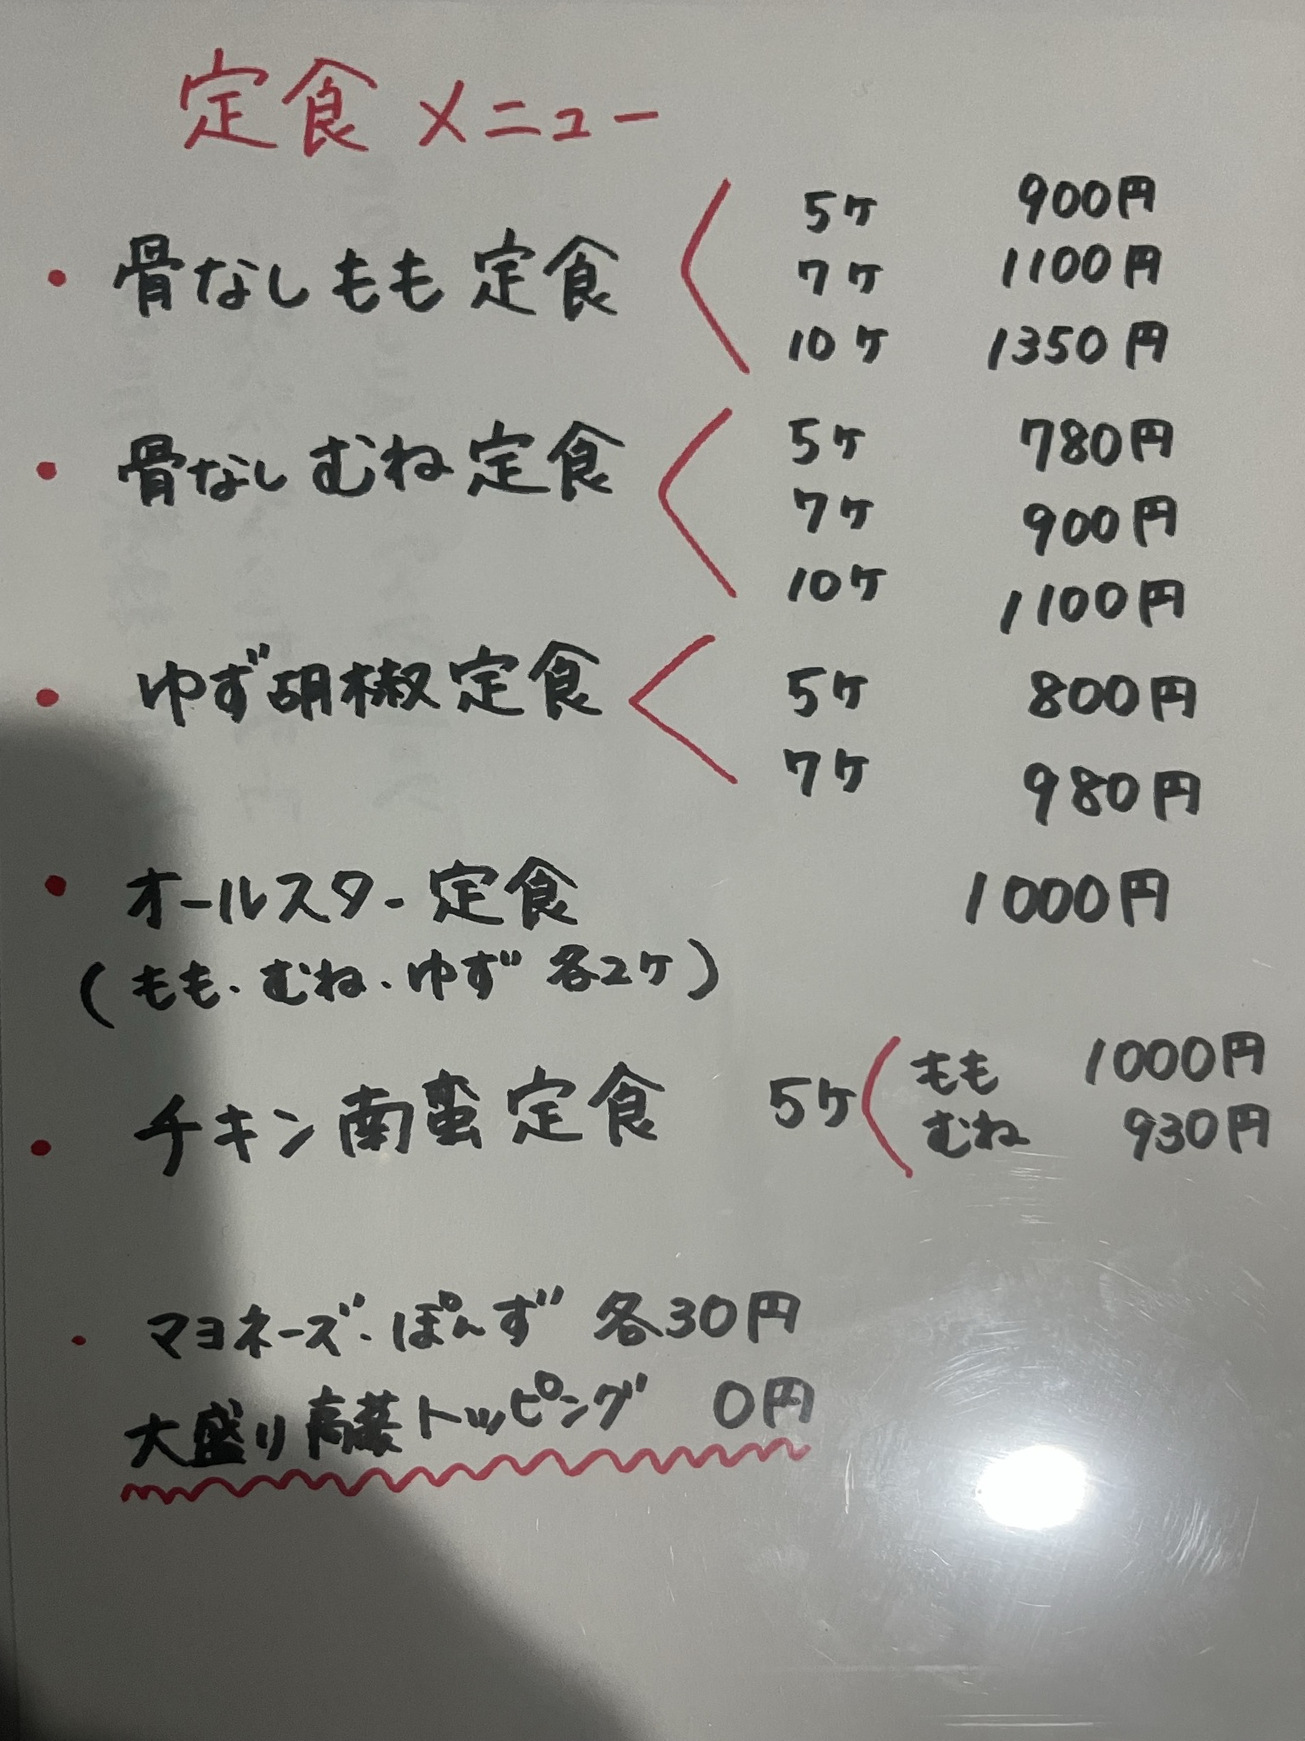 定食メニュー
・骨なしもも定食 5ヶ 900円
7ヶ 1100円
10ヶ 1350円
・骨なしむね定食 5ヶ 780円
7ヶ 900円
10ヶ 1100円
・ゆず胡椒定食 5ヶ 800円
7ヶ 980円
・オールスター定食 1000円
(もも・むね・ゆず 各2ヶ)
・チキン南蛮定食 5ヶ もも 1000円
むね 930円
・マヨネーズ・ぽんず 各30円
大盛り高菜トッピング 0円